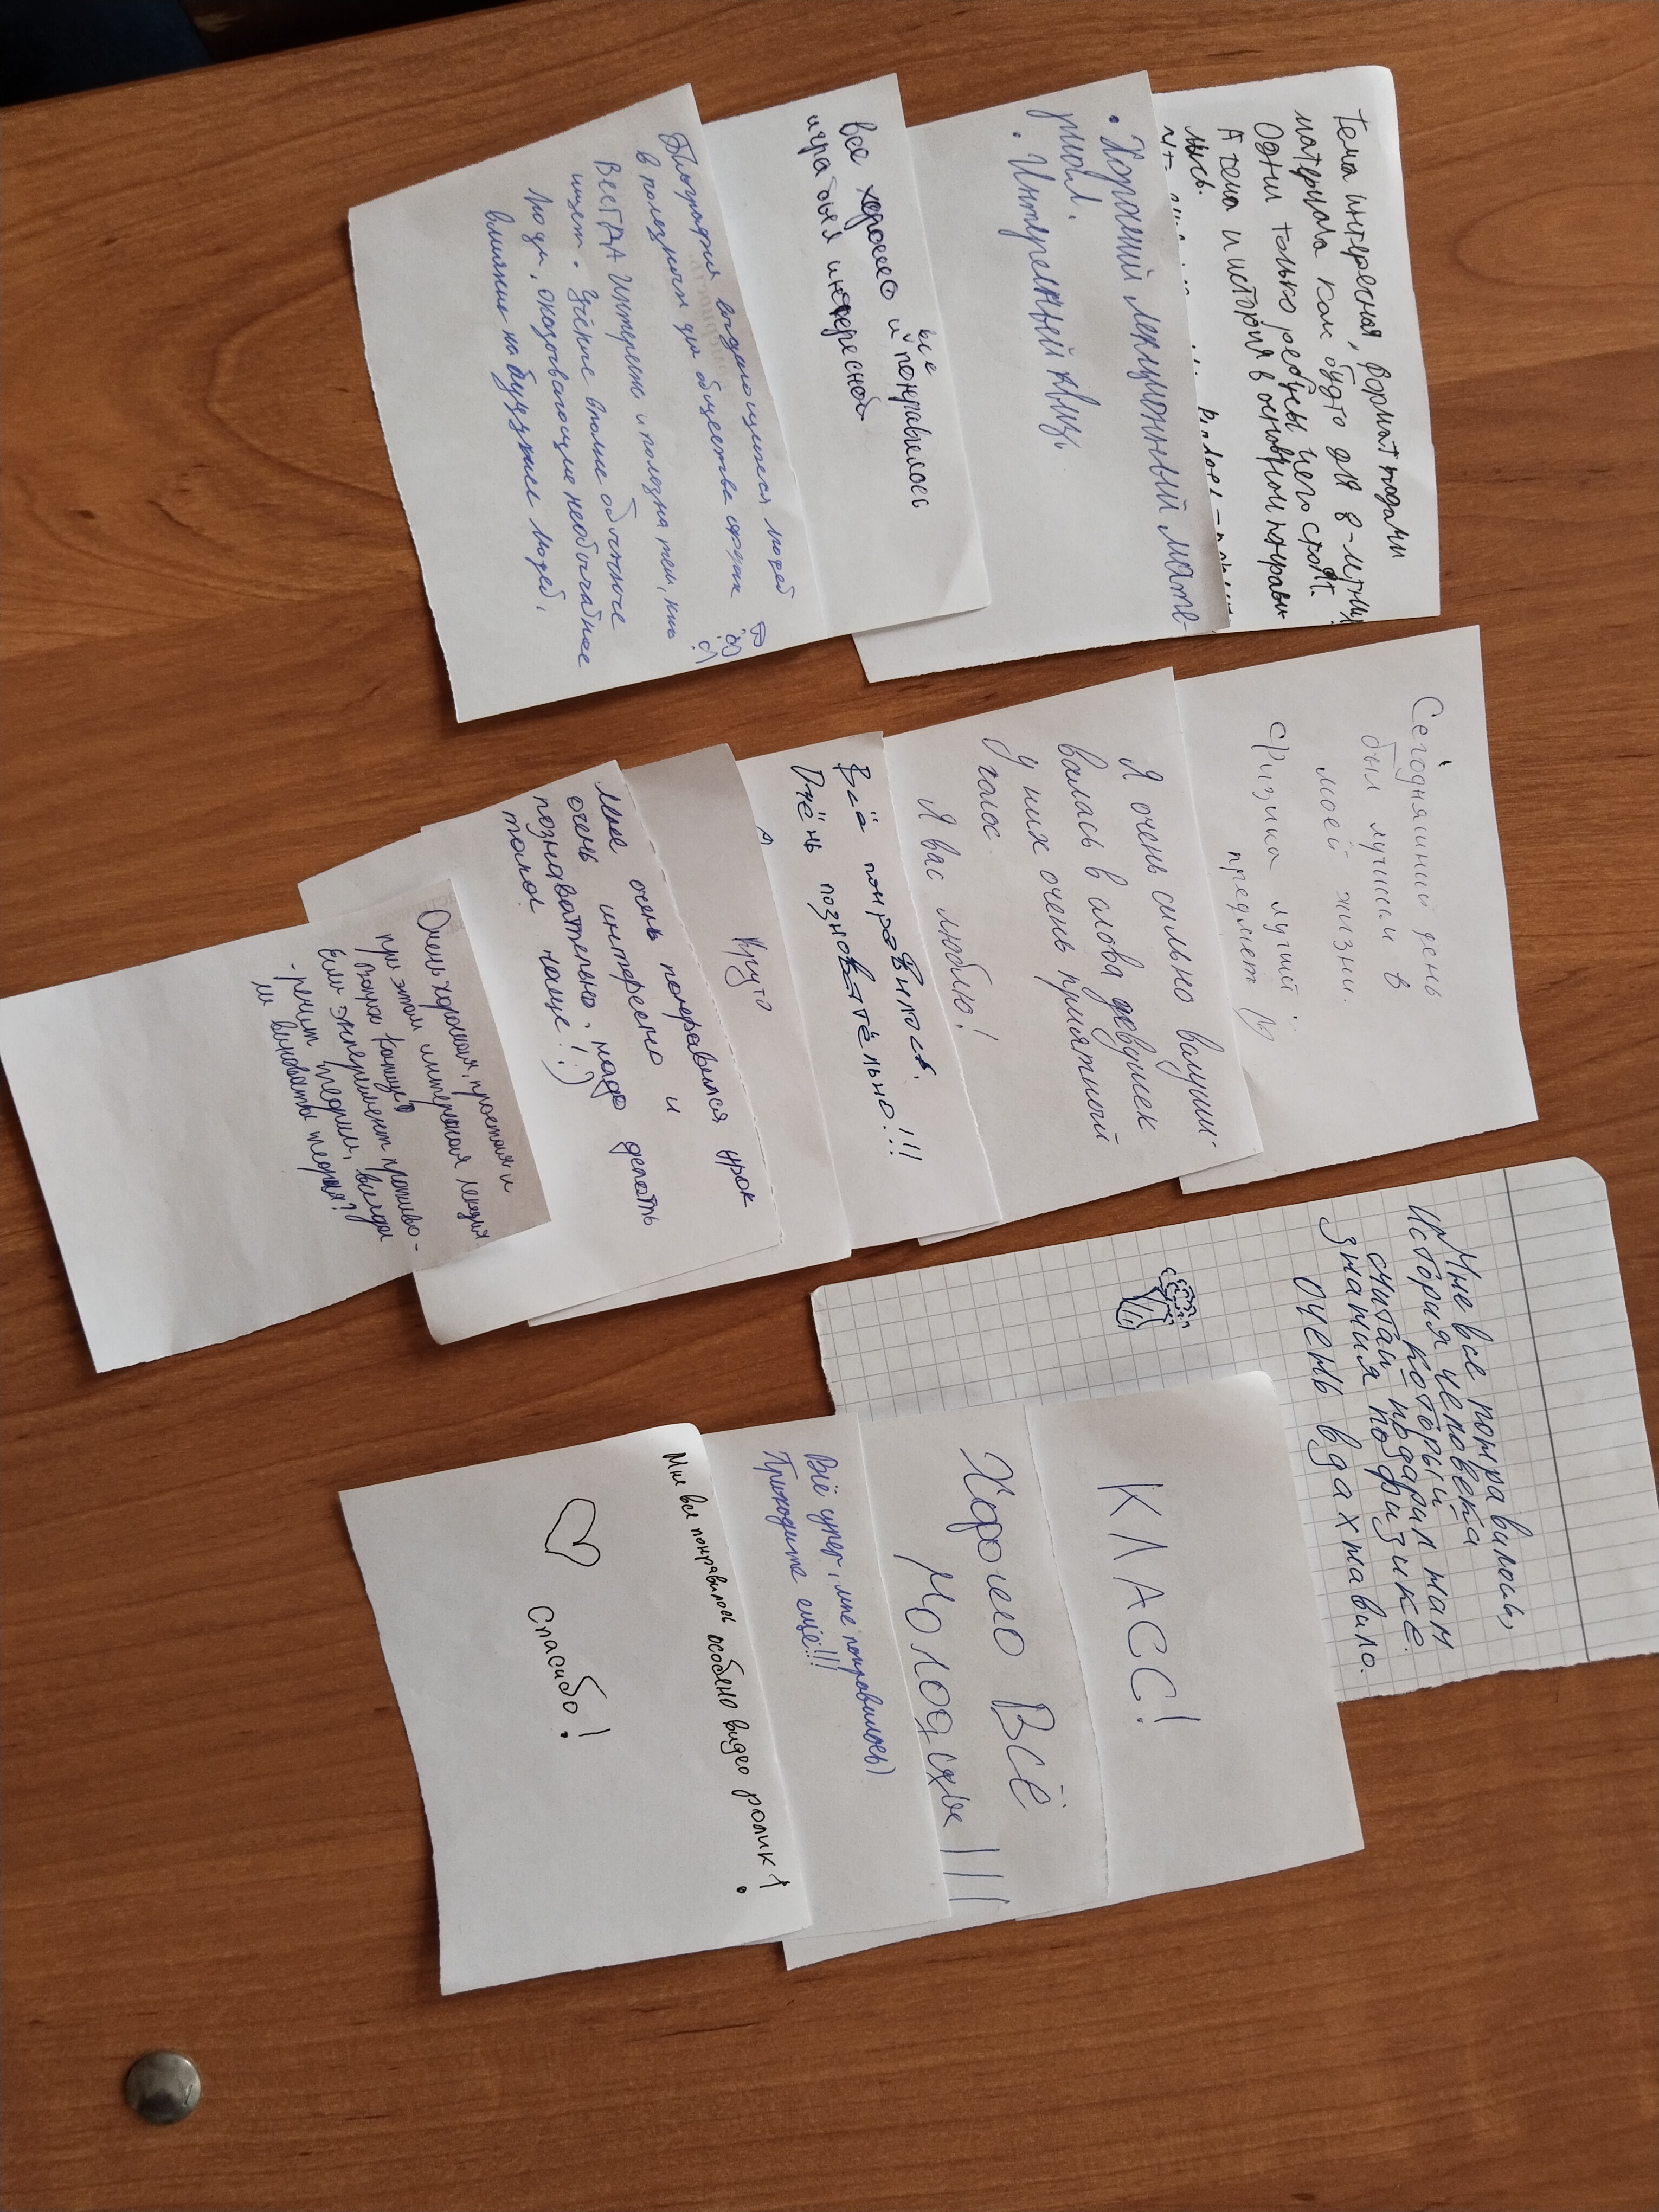 Тема интересная, формат подачи
материала как будто для 8-летних
Одни только ребусы чего стоят.
А тема и история в основном понрави-
лась.
• Хороший лекционный мате-
риал.
• Интересный квиз.
все хорошо и все понравилось
игра была интересной
Биография выдающихся людей
в полезных для общества сферах
ВСЕГДА интересно и полезна тем, кто
ищет. Учёные вполне обычные
люди, оказывающие необычайное
влияние на будущее людей.
Сегодняшний день
был лучшим в
моей жизни.
Физика лучший
предмет
Я очень сильно вслуши-
валась в слова девушек
у них очень приятный
голос.
Я вас люблю!
Всё понравилось.
Очень познавательно!!!
Круто
Мне очень понравился урок
очень интересно и
познавательно. надо делать
такое чаще! :)
Очень хорошая, простая и
при этом интересная лекция.
Вопрос
Если эксперимент противо-
-речит теории, всегда
ли виновата теория?
Мне все понравилось,
История человека
который
считай подарил нам
знания по физике.
очень вдахнавило.
КЛАСС!
Хорошо Всё
Молодцы !!!
Всё супер, мне понравилось)
Приходите ещё!!!
Мне все понравилось особено видео ролик!
Спасибо!